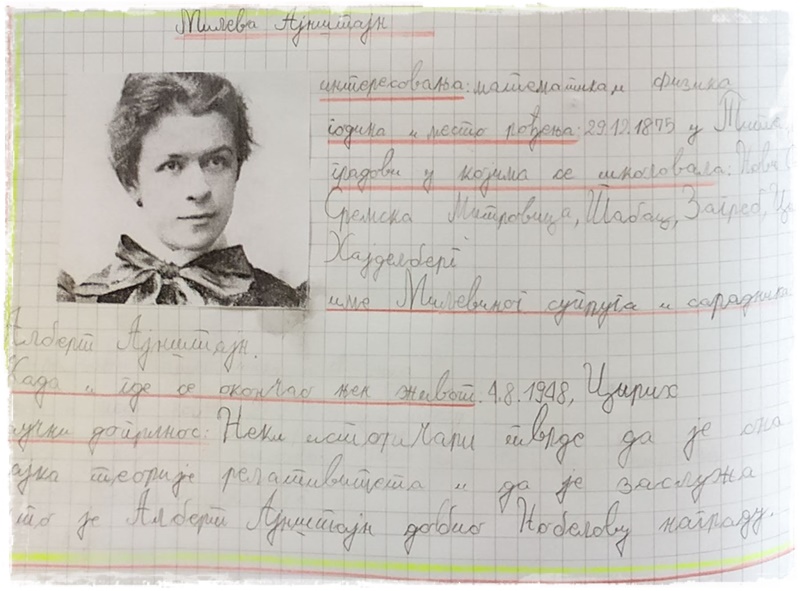 Милева Ајнштајн
интересовања: математика и физика
година и место рођења: 29.12.1875 у
градови у којима се школовала: Нови
Сремска Митровица, Шабац, Загреб,
Хајделберг
име Милевиног супруга и сарадника
Алберт Ајнштајн.
Када и где се окончао њен живот: 4.8.1948, Цирих
допринос: Неки историчари тврде да је она
теорије релативитета и да је
је Алберт Ајнштајн добио Нобелову награду.